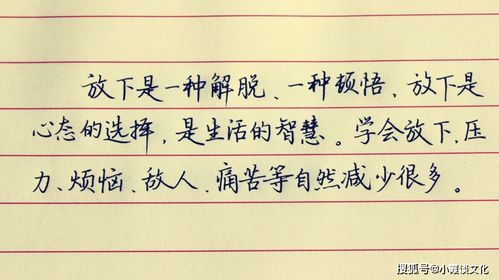 放下是一种解脱、一种顿悟,放下是
心态的选择,是生活的智慧。学会放下,压
力、烦恼、敌人、痛苦等自然减少很多。
搜狐号@小霞谈文化